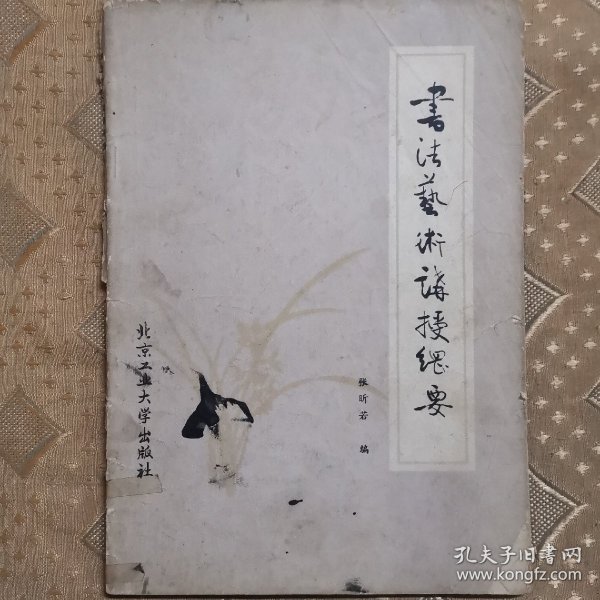 書法藝術講授綱要
张昕若 编
北京工业大学出版社
孔夫子旧书网
www.kongfz.com